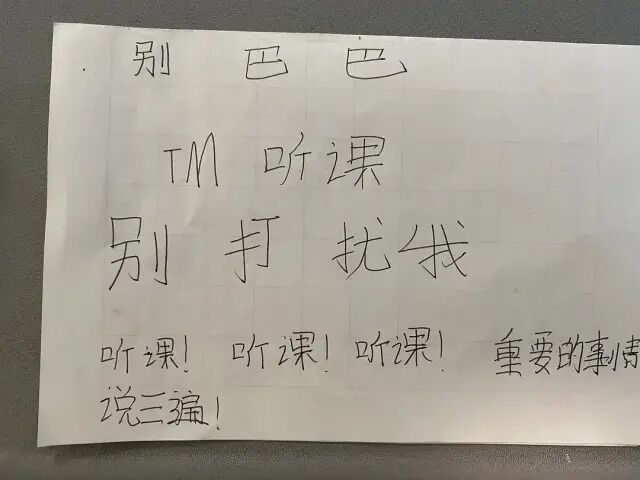 别 巴 巴
TM 听课
别 打 扰 我
听课! 听课! 听课! 重要的事情
说三遍!